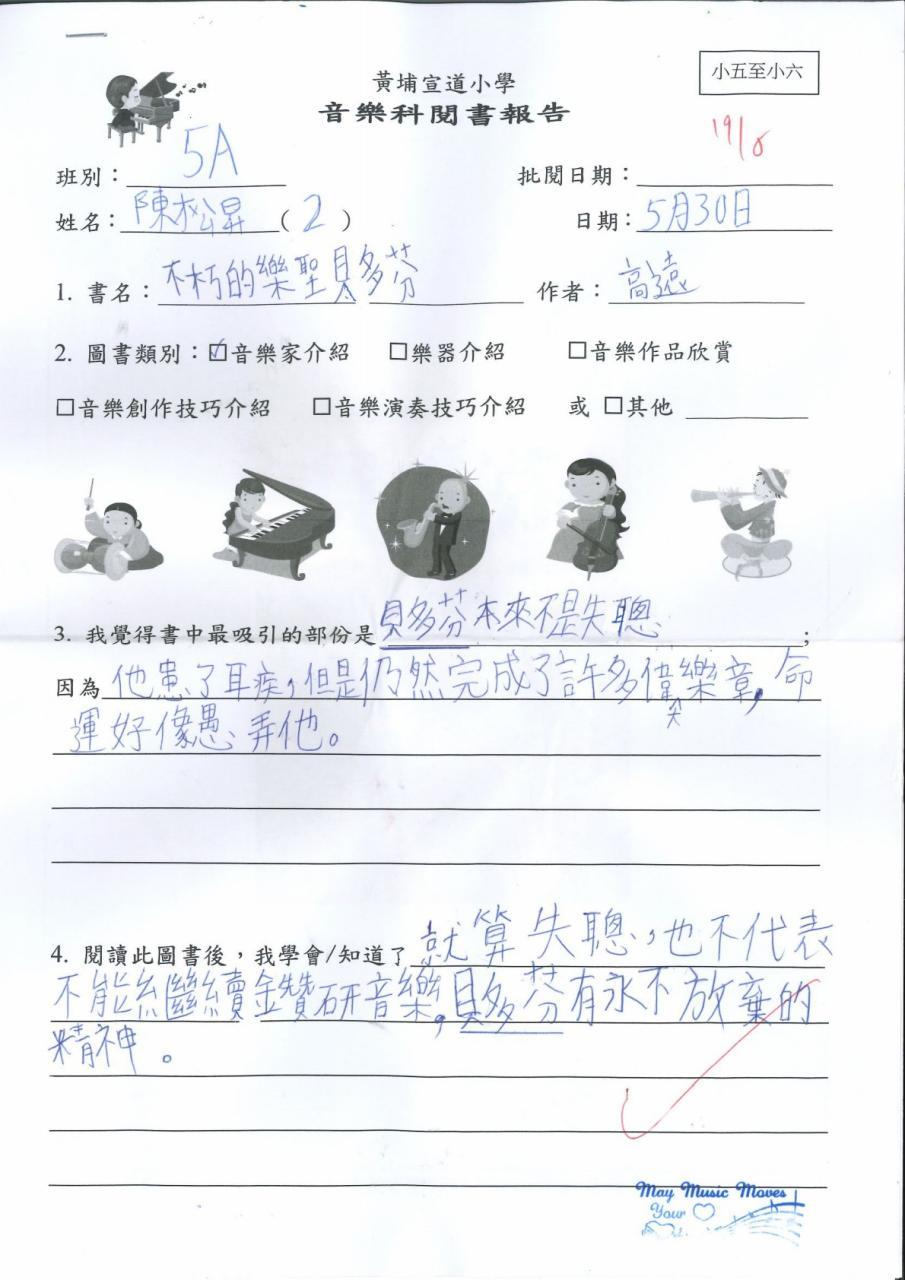 小五至小六
黃埔宣道小學
音樂科閱書報告
19/6
班別：5A 批閱日期：
姓名：陳松昇（2） 日期：5月30日
1. 書名：不朽的樂聖貝多芬 作者：高遠
2. 圖書類別：☑音樂家介紹 □樂器介紹 □音樂作品欣賞
□音樂創作技巧介紹 □音樂演奏技巧介紹 或 □其他
3. 我覺得書中最吸引的部份是貝多芬本來不是失聰；
因為他患了耳疾，但是仍然完成了許多偉大樂章，命
運好像愚弄他。
4. 閱讀此圖書後，我學會/知道了就算失聰，也不代表
不能繼續鑽研音樂，貝多芬有永不放棄的
精神。
May Music Moves
Your